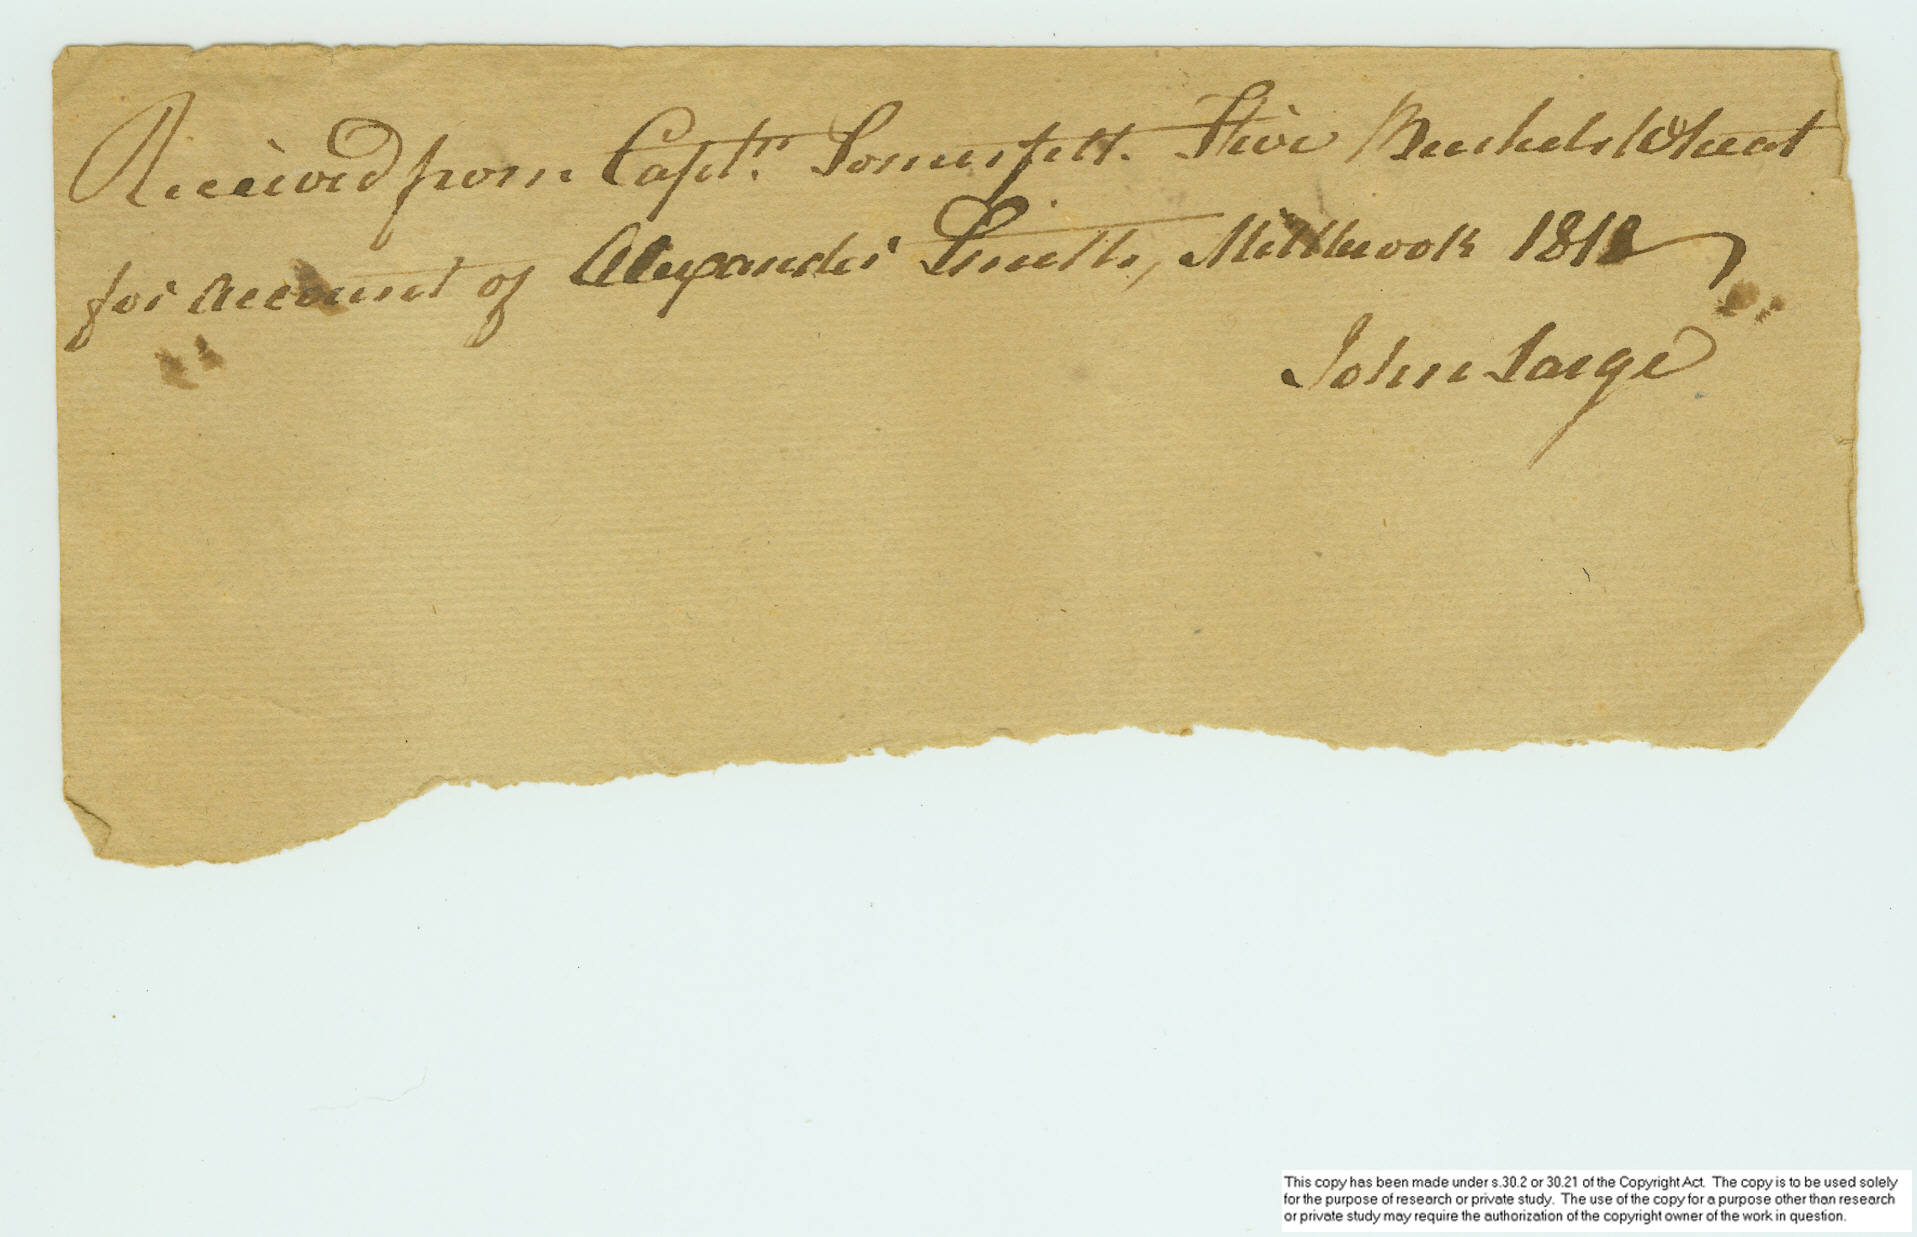 Received from Captn. Somersett. Five Bushels Wheat
for account of Alexander Smith, Millbrook 1812
John Large
This copy has been made under s.30.2 or 30.21 of the Copyright Act. The copy is to be used solely
for the purpose of research or private study. The use of the copy for a purpose other than research
or private study may require the authorization of the copyright owner of the work in question.